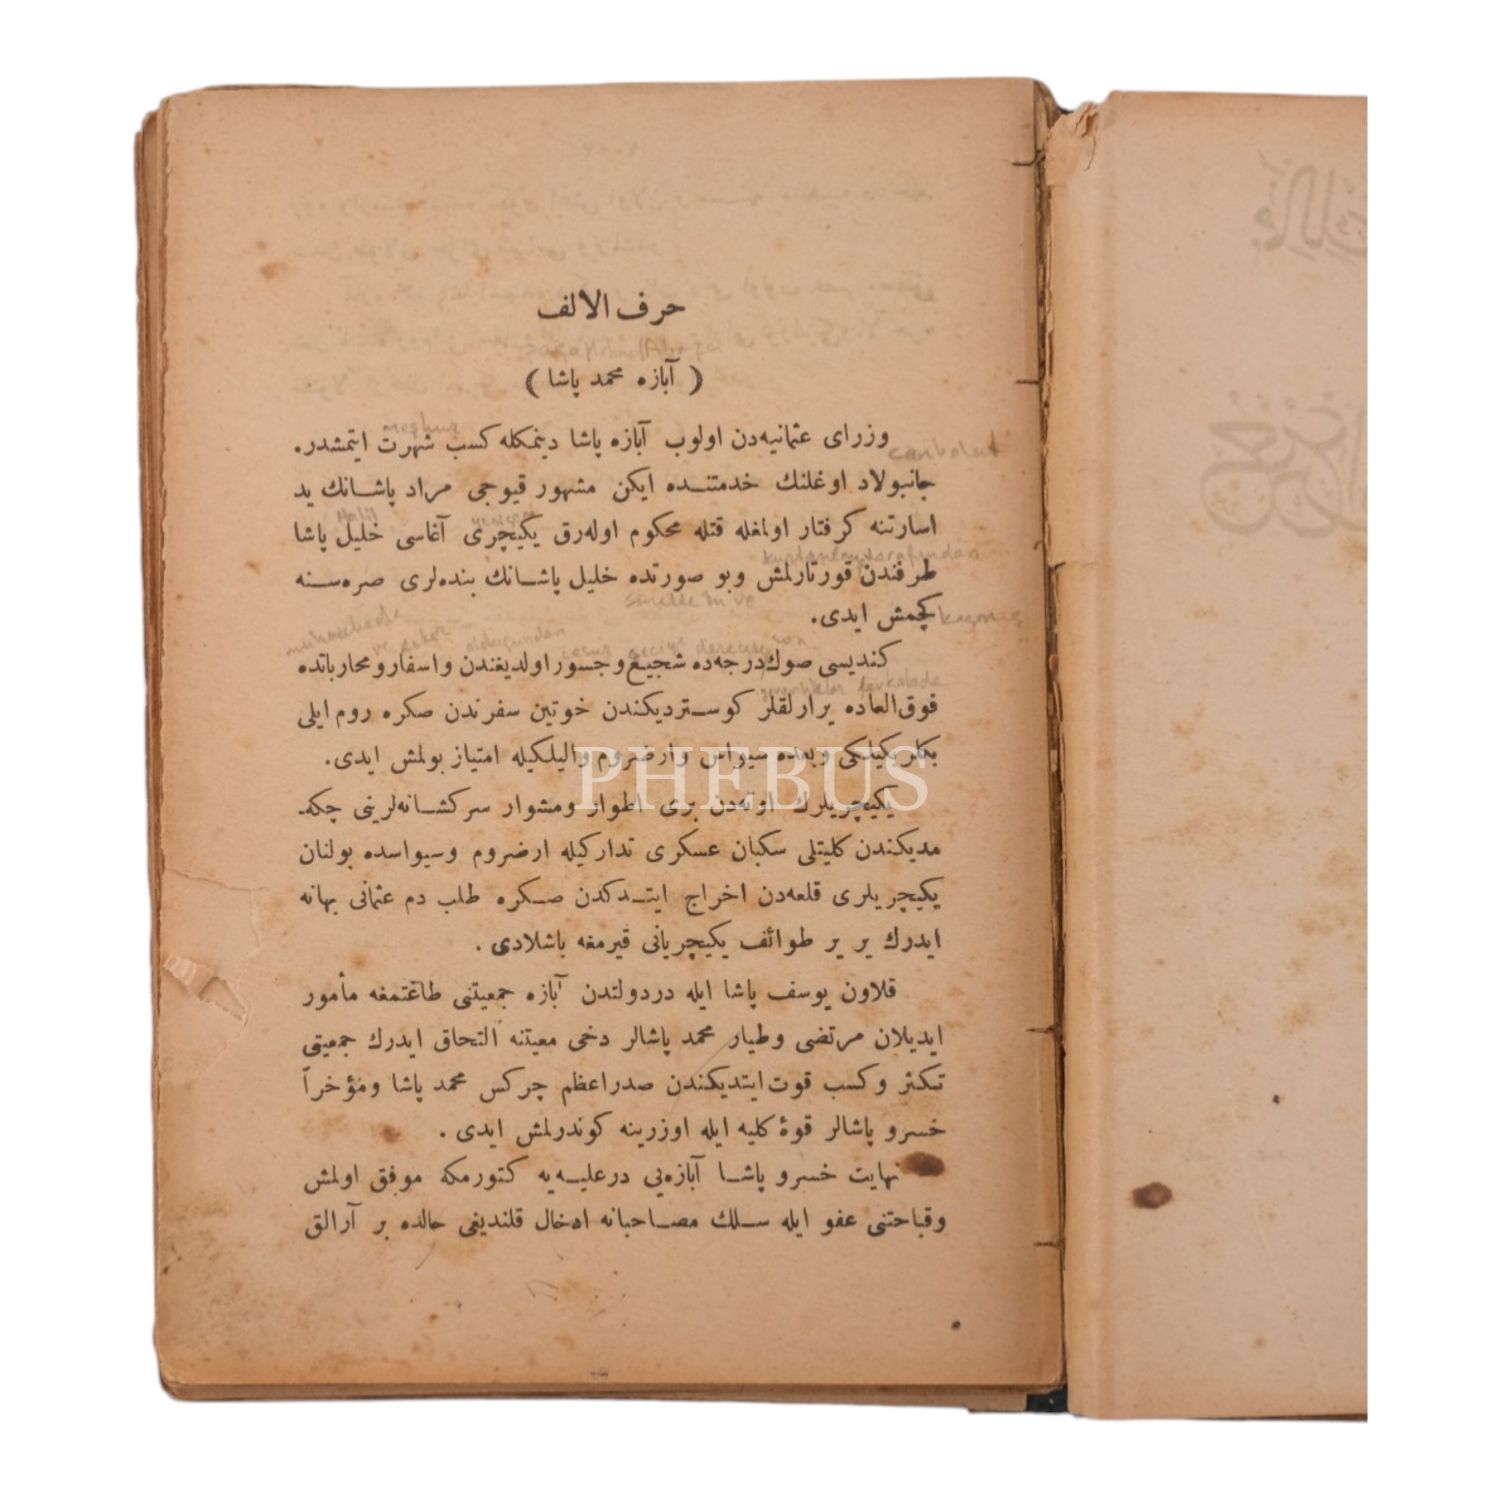 حرف الالف
( آبازه محمد پاشا )
وزرای عثمانیه‌دن اولوب آبازه پاشا دینمكله كسب شهرت ایتمشدر.
جانبولاد اوغلنك خدمتنده ایكن مشهور قیوجی مراد پاشانك ید
اسارتنه كرفتار اولمغله قتله محكوم اوله‌رق یكیچری آغاسی خلیل پاشا
طرفندن قورتارلمش وبو صورتده خلیل پاشانك بنده‌لری صره‌سنه
كچمش ایدی.
كندیسی صوك درجه‌ده شجیع و جسور اولدیغندن و اسفار و محارباتده
فوق العاده یرارلقلر كوستردیكندن خوتین سفرندن صكره روم ایلی
بكلربكیلكی وبعده سیواس وارضروم والیلكیله امتیاز بولمش ایدی.
یكیچریلرك اوته‌دن بری اطوار ومشوار سركشانه‌لرینی چكه‌
مدیكندن كلیتلی سكبان عسكری تداركیله ارضروم وسیواسده بولنان
یكیچریلری قلعه‌دن اخراج ایتدكدن صكره طلب دم عثمانی بهانه
ایدرك یر یر طوائف یكیچریانی قیرمغه باشلادی.
قلاون یوسف پاشا ایله دردولتدن آبازه جمعیتنی طاغتمغه مأمور
ایدیلان مرتضی وطیار محمد پاشالر دخی معیتنه التحاق ایدرك جمعیتی
تكثر وكسب قوت ایتدیكندن صدراعظم چركس محمد پاشا ومؤخراً
خسرو پاشالر قوهٔ كلیه ایله اوزرینه كوندرلمش ایدی.
نهایت خسرو پاشا آبازه‌یی درعلیه‌یه كتورمكه موفق اولمش
وقباحتنی عفو ایله سلك مصاحبانه ادخال قلندیغی حالده بر آرالق
meşhur
canbolad
kurtarılmış tarafından
surette bu ve
kaçmış
muharebede
ve sefer
olduğundan
cesur
derecede son
yararlıklar fevkalade
PHEBUS